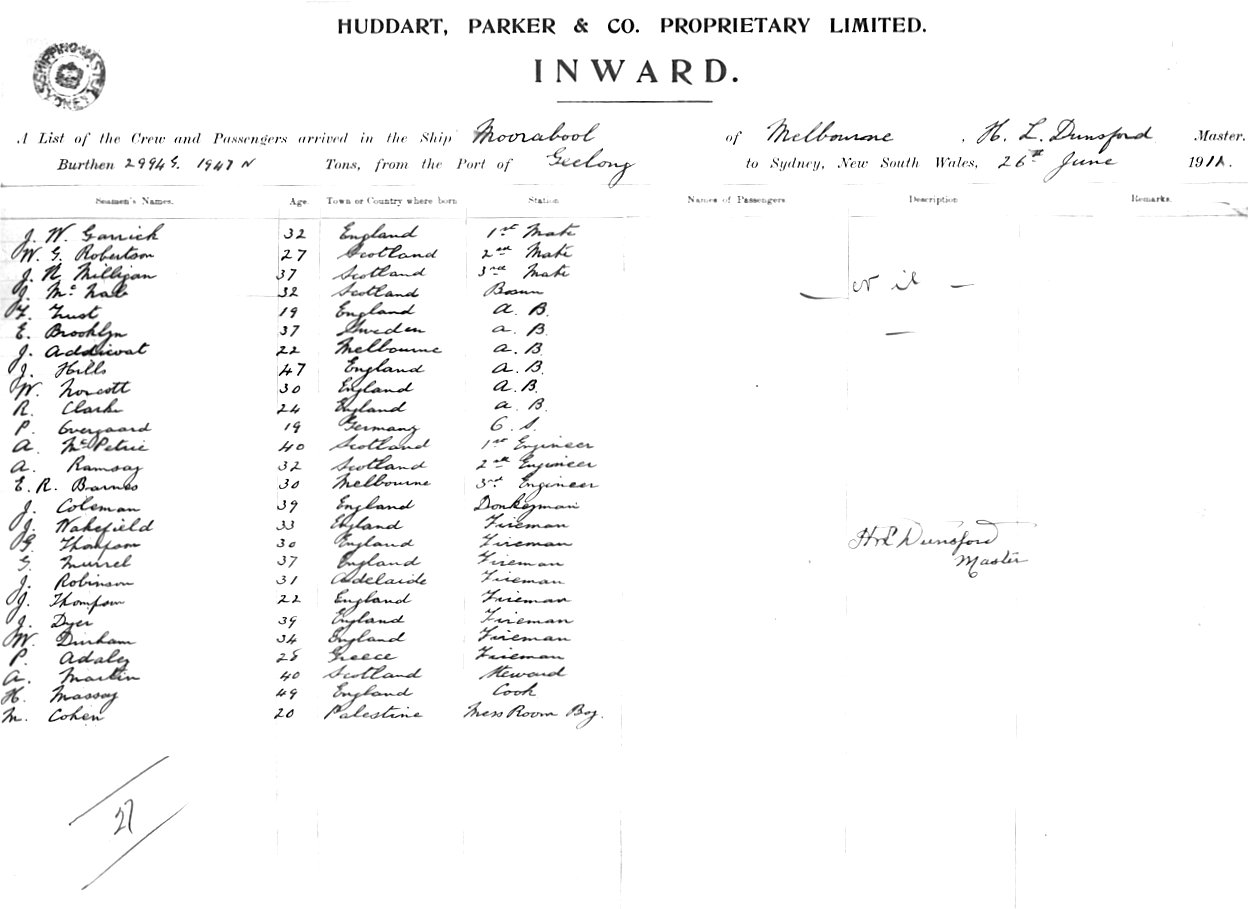 HUDDART, PARKER & CO. PROPRIETARY LIMITED.
INWARD.
SHIPPING MASTER SYDNEY
A List of the Crew and Passengers arrived in the Ship Moorabool of Melbourne, H. L. Dunsford Master.
Burthen 2994 G. 1947 N Tons, from the Port of Geelong to Sydney, New South Wales, 26th June 191
Seamen's Names. Age. Town or Country where born Station Names of Passengers Description Remarks.
J. W. Garrick 32 England 1st Mate
W. G. Robertson 27 Scotland 2nd Mate
J. N Milligan 37 Scotland 3rd Mate
J. McNab 32 Scotland Bosun
F. Trust 19 England A. B.
E. Brooklyn 37 Sweden A. B.
J. Addicoat 22 Melbourne A. B.
J. Hills 47 England A. B.
W. Norcott 30 England A. B.
R. Clarke 24 England A. B.
P. Overgaard 19 Germany O. S.
A. McPetrie 40 Scotland 1st Engineer
A. Ramsay 32 Scotland 2nd Engineer
E. R. Barnes 30 Melbourne 3rd Engineer
J. Coleman 39 England Donkeyman
J. Wakefield 33 England Fireman
G. Thompson 30 England Fireman
G. Murrel 37 England Fireman
J. Robinson 31 Adelaide Fireman
J. Thompson 22 England Fireman
J. Dyer 39 England Fireman
W. Durham 34 England Fireman
P. Adaley 28 Greece Fireman
A. Martin 40 Scotland Steward
H. Massay 49 England Cook
M. Cohen 20 Palestine Mess Room Boy.
— Nil —
H L Dunsford
Master
27